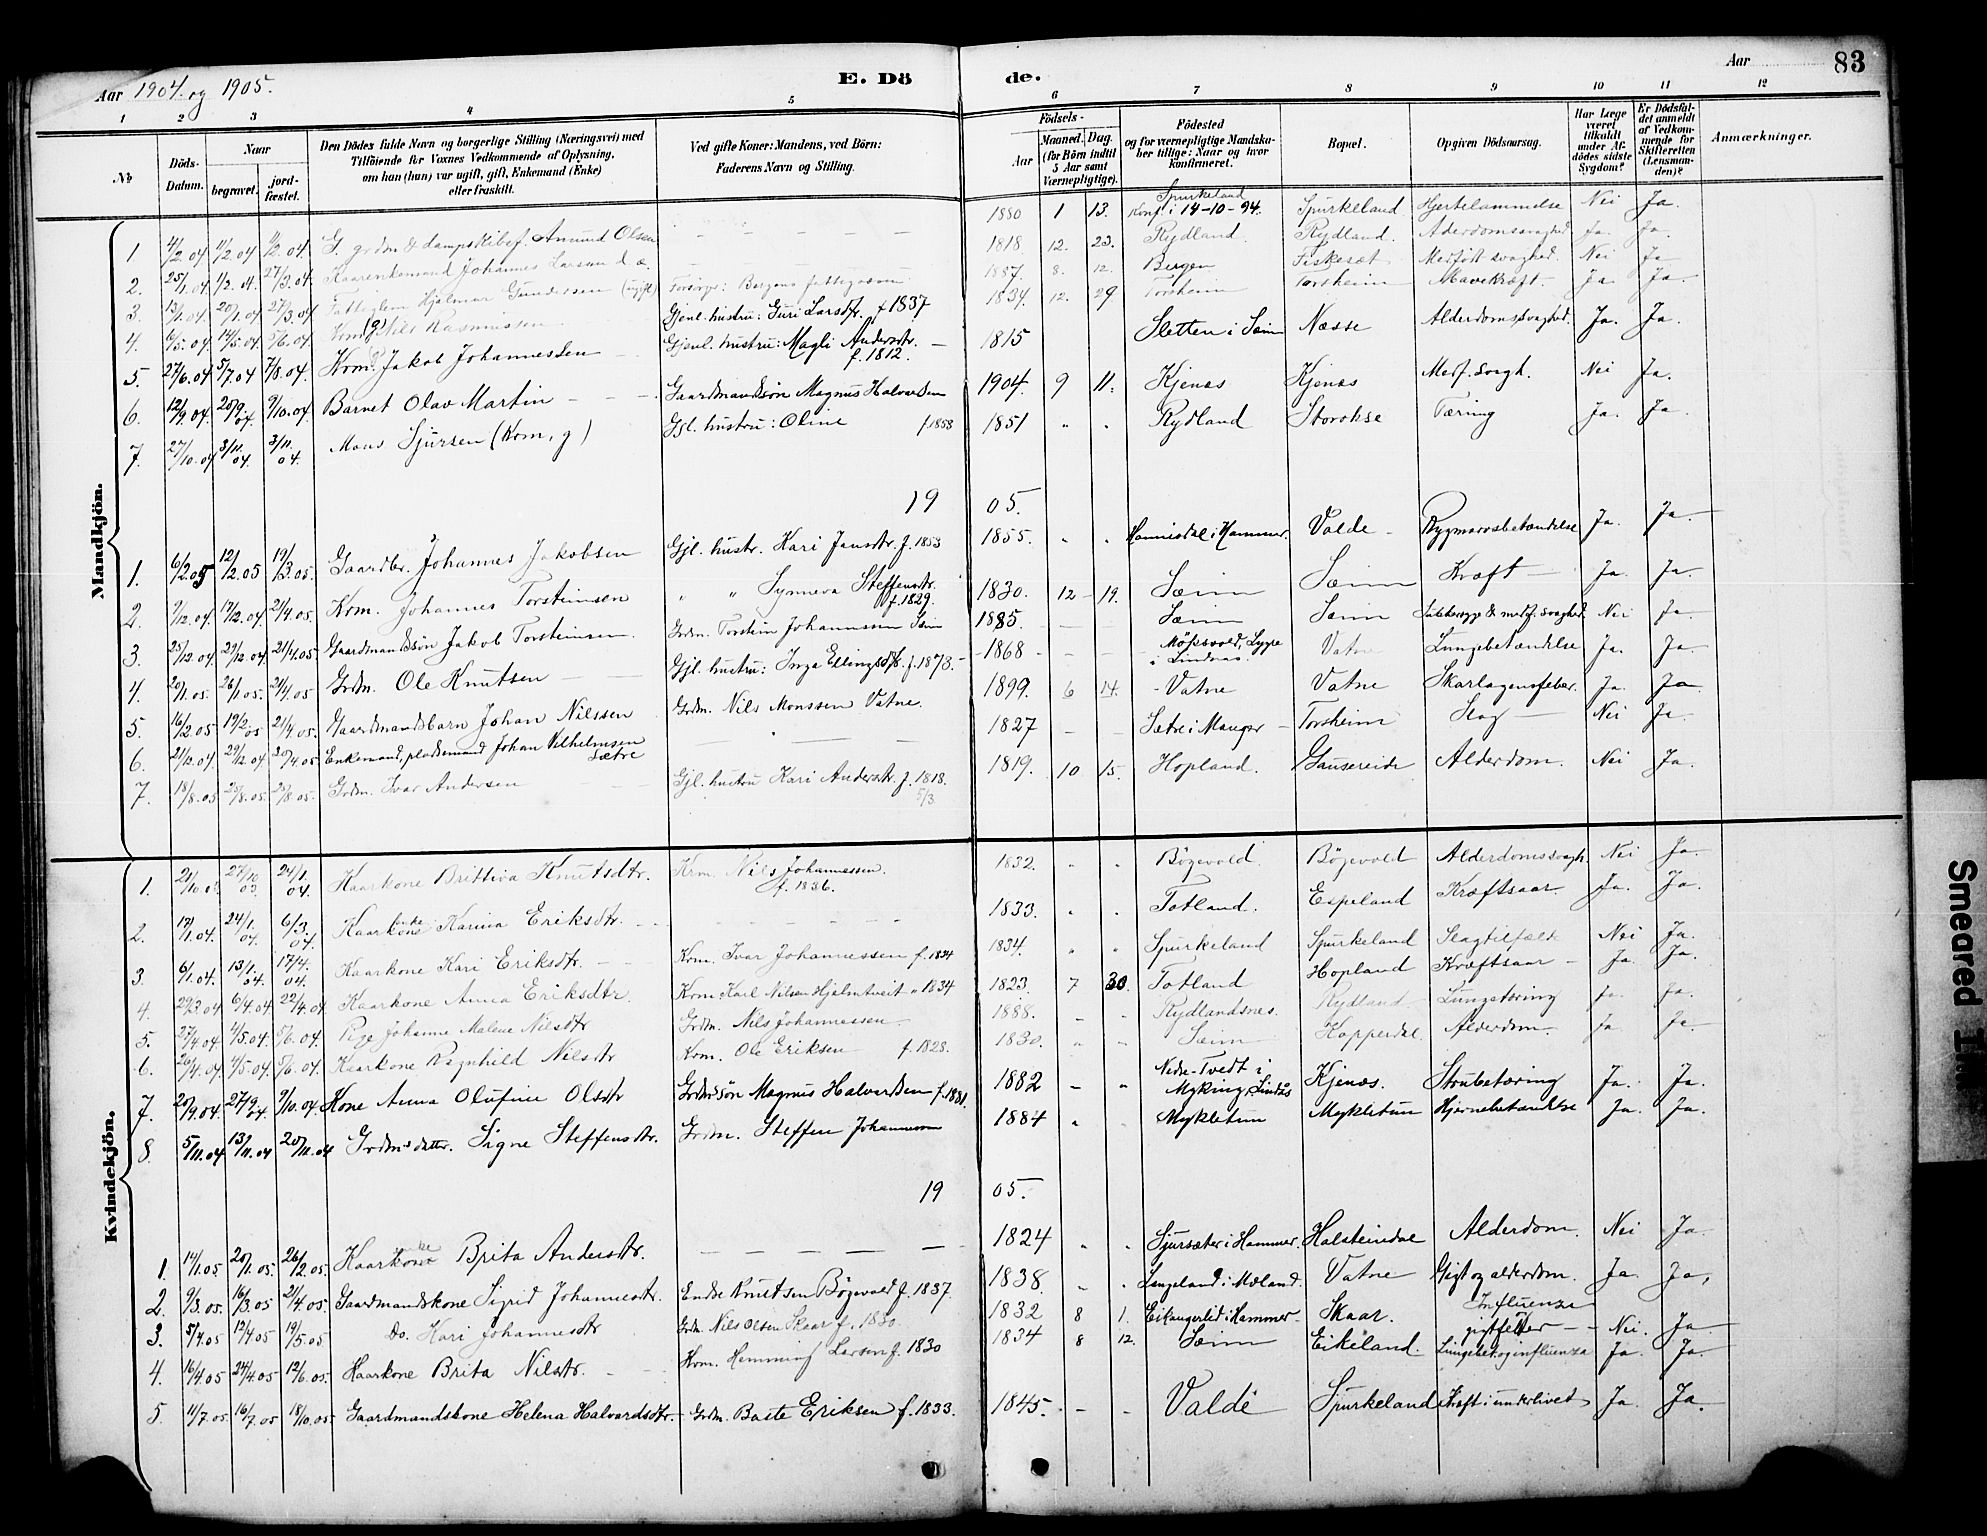 Aar 1904. og 1905.
E. Döde.
Aar
83
1 2 3 4 5 6 7 8 9 10 11 12
№
Döds-Datum.
Naar begravet. jordfæstet.
Den Dödes fulde Navn og borgerlige Stilling (Næringsvei) med Tilföiende for Voxnes Vedkommende af Oplysning, om han (hun) var ugift, gift, Enkemand (Enke) eller fraskilt.
Ved gifte Koner: Mandens, ved Börn: Faderens Navn og Stilling.
Födsels-
Aar Maaned. Dag. (for Börn indtil 5 Aar samt Værnepligtige).
Födested og for værnepligtige Mandskaber tillige: Naar og hvor konfirmeret.
Bopæl.
Opgiven Dödsaarsag.
Har Læge været tilkaldt under Afdödes sidste Sygdom?
Er Dödsfaldet anmeldt af Vedkommende for Skifteretten (Lensmanden)?
Anmærkninger.
Mandkjön.
1 4/2.04 11/2.04 11/2.04. G. grdm & dampskibsf. Amund Olsen — — — 1880 1 13. Spurkeland Konf. i 14-10-94. Spurkeland Hjertelammelse Nei Ja.
2. 25/1.04 1/2.04. 27/3.04. Kaarenkemand Johannes Larsen — — — 1818 12. 23. Rydland. Rydland. Alderdomssvaghed Ja. Ja.
3. 13/1.04. 20/1.04 27/3.04 Fattiglem Hjalmar Gundersen (ugift) Forsørges: Bergens fattigvæsen 1887. 8. 12. Bergen Fiskesæt Medfødt svaghed. Nei Ja
4. 6/5.04 14/5.04 5/6.04. Krm. (g) Nils Rasmussen Gjenl. hustru: Guri Larsdtr. f 1837 1834. 12. 29 Torsheim Torsheim Mavekræft. Ja. Ja.
5. 27/6.04 5/7.04 7/8.04. Krm. Jakob Johannessen Gjenl. hustru: Magli Andersdtr. f. 1812. 1815 Sletten i Sæim Næsse Alderdomssvaghed. Ja. Ja.
6. 12/9.04. 20/9.04 9/10.04 Barnet Olav Martin — — — Gaardmandssøn Magnus Halvardsen 1904. 9 11. Kjenæs Kjenæs Medf. svagh. Nei Ja.
7. 27/10.04 3/11.04. 3/11.04. Mons Sjursen (Krm, g) Gjl. hustru: Oline f 1853 1851 " " Rydland Storokse Tæring Ja. Ja.
1905.
1. 6/2.05 12/2.05 19/3.05. Gaardbr. Johannes Jakobsen Gjl. hustr. Kari Jansdtr. f. 1853 1855. " " Hannisdal i Hammer. Valde Rygmarvsbetændelse Ja. Ja.
2. 7/12.04. 17/12.04 21/4.05. Krm. Johannes Torsteinsen " " Synneva Steffensdtr. f. 1829. 1830. 12 19. Sæim Sæim Kræft — Ja. Ja.
3. 25/12.04 29/12.04. 21/4.05. Gaardmandssøn Jakob Torsteinsen. Grdm. Torstein Johannessen Sæim 1885. — — Sæim Sæim & medf. svaghed. Nei Ja
4. 20/1.05. 26/1.05. 24/4.05 Grdm. Ole Knutsen — — Gjl. hustru: Inga Ellingsdtr. f. 1873. 1868 — — Lygre i Lindaas. Vatne Lungebetændelse Ja. Ja
5. 16/2.05 19/2.05 21/4.05 Gaardmandsbarn Johan Nilssen Grdm. Nils Monssen Vatne. 1899. 6 14. Vatne Vatne Skarlagensfeber. Ja. Ja
6. 21/12.04. 29/12.04 30/4.05 Enkemand, pladsemand Johan Vilhelmsen Sætre — — — 1827 — — Sætre i Manger Torsheim Slag — Nei Ja.
7. 18/8.05 25/8.05. 25/8.05. Grdm. Ivar Andersen Gjl. hustru Kari Andersdtr. f. 1818. 5/3 1819. 10 15. Hopland. Gausereide Alderdom. Nei Ja.
Kvindekjön.
1. 21/10.03. 27/10.03. 24/1.04. Kaarkone Brittva Knutsdtr. Krm. Nils Johannessen. f. 1836. 1832. " " Bøgevold. Bøgevold Alderdomssvagh. Nei Ja.
2. 17/1.04. 24/1.04. 6/3.04. Kaarenke Karina Eriksdtr. — — — 1833. " " Totland. Espeland Kræftsaar. Ja. Ja.
3. 6/1.04. 13/1.04. 17/4.04. Kaarkone Kari Eriksdtr. — — Krm. Ivar Johannessen f. 1834 1834. " " Spurkeland Spurkeland Slagtilfælde Nei Ja.
4. 29/3.04 6/4.04 22/4.04 Kaarkone Anna Eriksdtr Krm. Karl Nilsen Hjelmtveit " 1834 1823. 7 30. Totland Hopland Kræftsaar — Ja. Ja.
5. 27/4.04 4/5.04. 5/6.04. Pige Johanne Malene Nilsdtr Grdm. Nils Johannessen. 1888. — " Rydlandsnes. Rydland Lungetæring Ja. Ja.
6. 26/4.04. 4/5.04. 5/6.04. Kaarkone Ragnhild Nilsdtr Krm. Ole Eriksen f. 1828. 1830. " " Sæim Hopperdal. Alderdom. Ja Ja.
7. 20/9.04. 27/9.04. 9/10.04 Kone Anna Olufine Olsdtr Grdmssøn Magnus Halvardsen f. 1881. 1882 — " Nedre-Tvedt i Myking, Lindås Kjenæs. Strubetæring Ja. Ja.
8. 5/11.04 13/11.04 20/11.04 Grdmsdatter. Signe Steffensdtr. Grdm. Steffen Johannessen 1884 " Mykletun Mykletun Hjernebetændelse Ja. Ja.
1905.
1. 14/1.05. 20/1.05. 26/2.05. Kaarenke Brita Andersdtr. — — — — 1824 " " Sjursæter i Hammer. Halsteindal Alderdom. Nei Ja.
2. 9/3.05. 16/3.05 21/4.05. Gaardmandskone Sigrid Johannesdtr. Endre Knutsen Bøgevold f. 1837. 1838. " " Langeland i Mæland. Vatne Gigt og alderdom. Ja. Ja,
3. 5/4.05 12/4.05 19/5.05 Do. Kari Johannesdtr Grdm. Nils Olsen Skaar f. 1830. 1832 8 1. Eikangerlid i Hammer. Skaar. Influenza gigtfeber — Nei. Ja
4. 16/4.05 24/4.05 12/6.05. Kaarkone Brita Nilsdtr. — Krm. Hemming Larsen f. 1830 1834 8 12. Sæim Eikeland. Lungebet. og influenza Ja. Ja.
5. 11/7.05 16/7.05 18/10.05 Gaardmandskone Helena Halvardsdtr. Grdm. Baste Eriksen f. 1833. 1845. — — Valde Spurkeland Kræft i underlivet Ja. Ja.
Smeared Ink